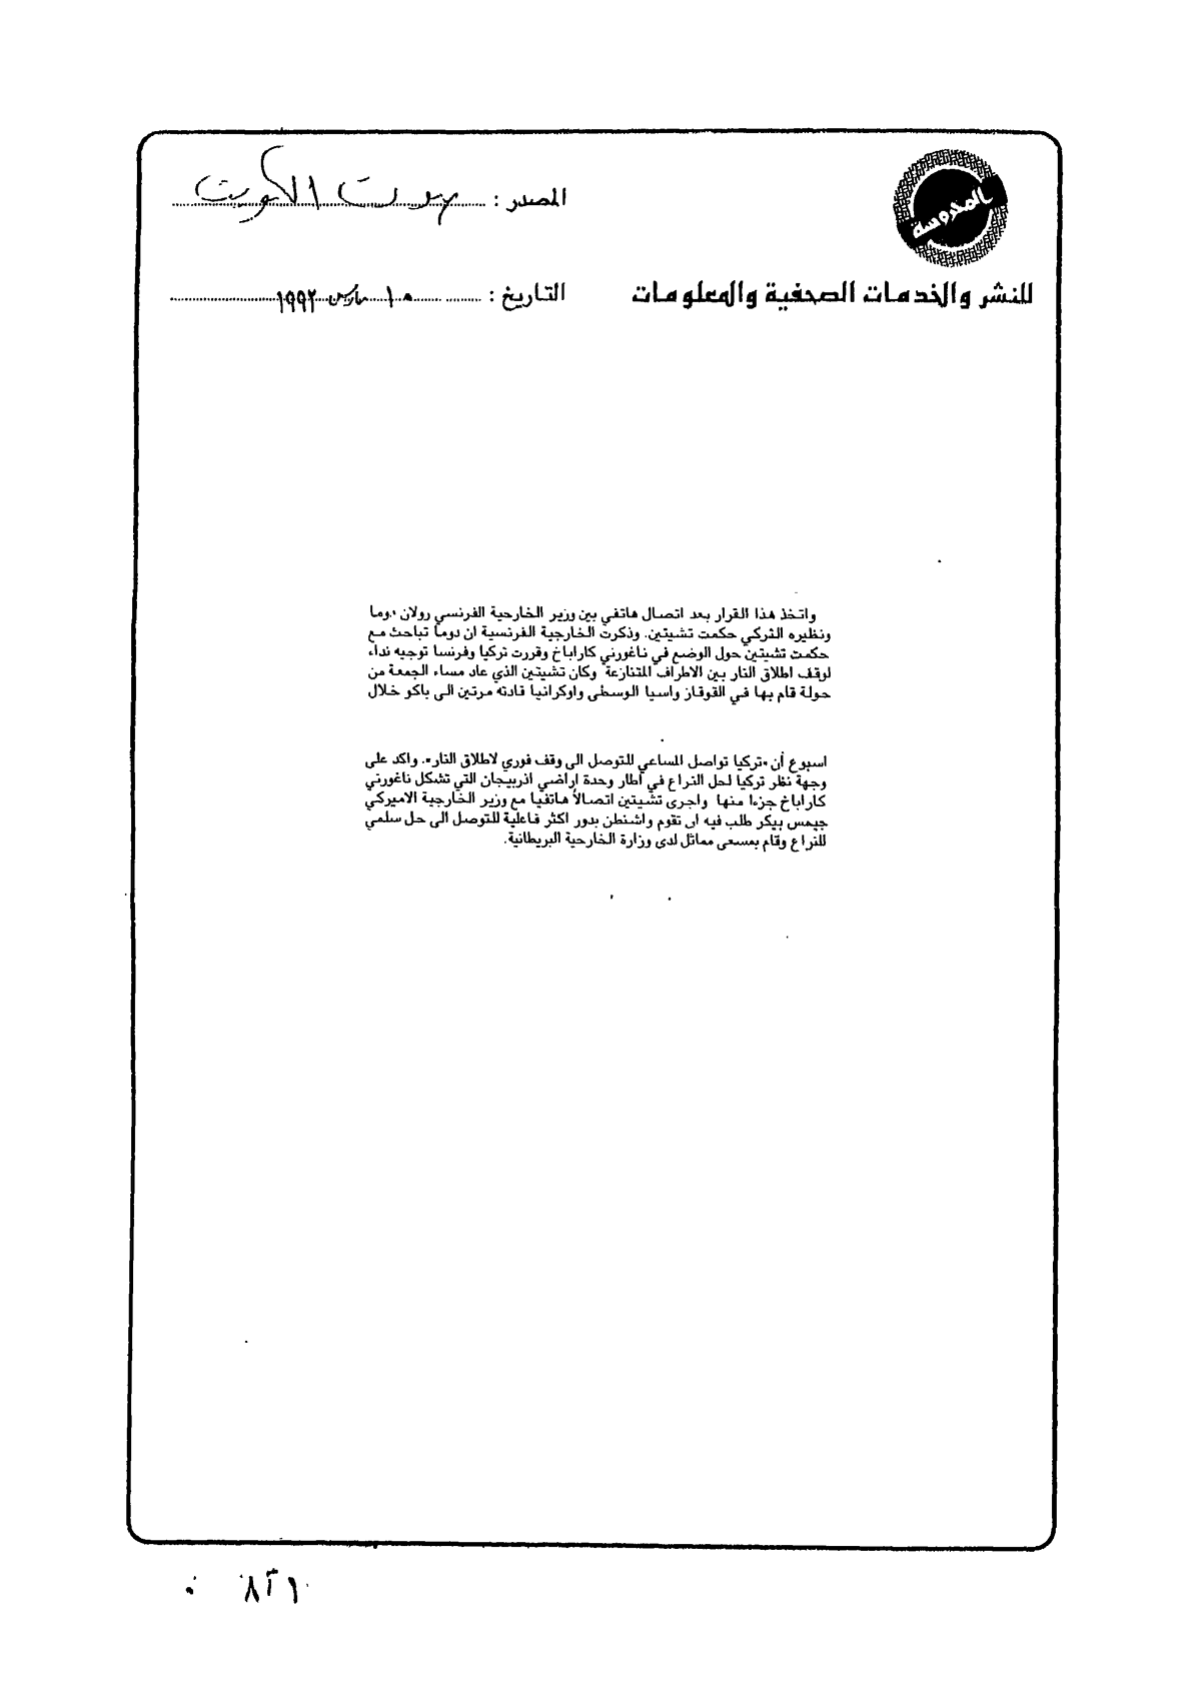 المحروسة
المصدر : صوت الكويت
للنشر والخدمات الصحفية والمعلومات
التاريخ : ١٠ مارس ١٩٩٢
واتخذ هذا القرار بعد اتصال هاتفي بين وزير الخارجية الفرنسي رولان دوما
ونظيره التركي حكمت تشيتين. وذكرت الخارجية الفرنسية ان دوما تباحث مع
حكمت تشيتين حول الوضع في ناغورني كاراباخ وقررت تركيا وفرنسا توجيه نداء
لوقف اطلاق النار بين الاطراف المتنازعة وكان تشيتين الذي عاد مساء الجمعة من
جولة قام بها في القوقاز واسيا الوسطى واوكرانيا قادته مرتين الى باكو خلال
اسبوع أن «تركيا تواصل المساعي للتوصل الى وقف فوري لاطلاق النار». واكد على
وجهة نظر تركيا لحل النزاع في اطار وحدة اراضي اذربيجان التي تشكل ناغورني
كاراباخ جزءا منها واجرى تشيتين اتصالاً هاتفيا مع وزير الخارجية الاميركي
جيمس بيكر طلب فيه ان تقوم واشنطن بدور اكثر فاعلية للتوصل الى حل سلمي
للنزاع وقام بمسعى مماثل لدى وزارة الخارجية البريطانية.